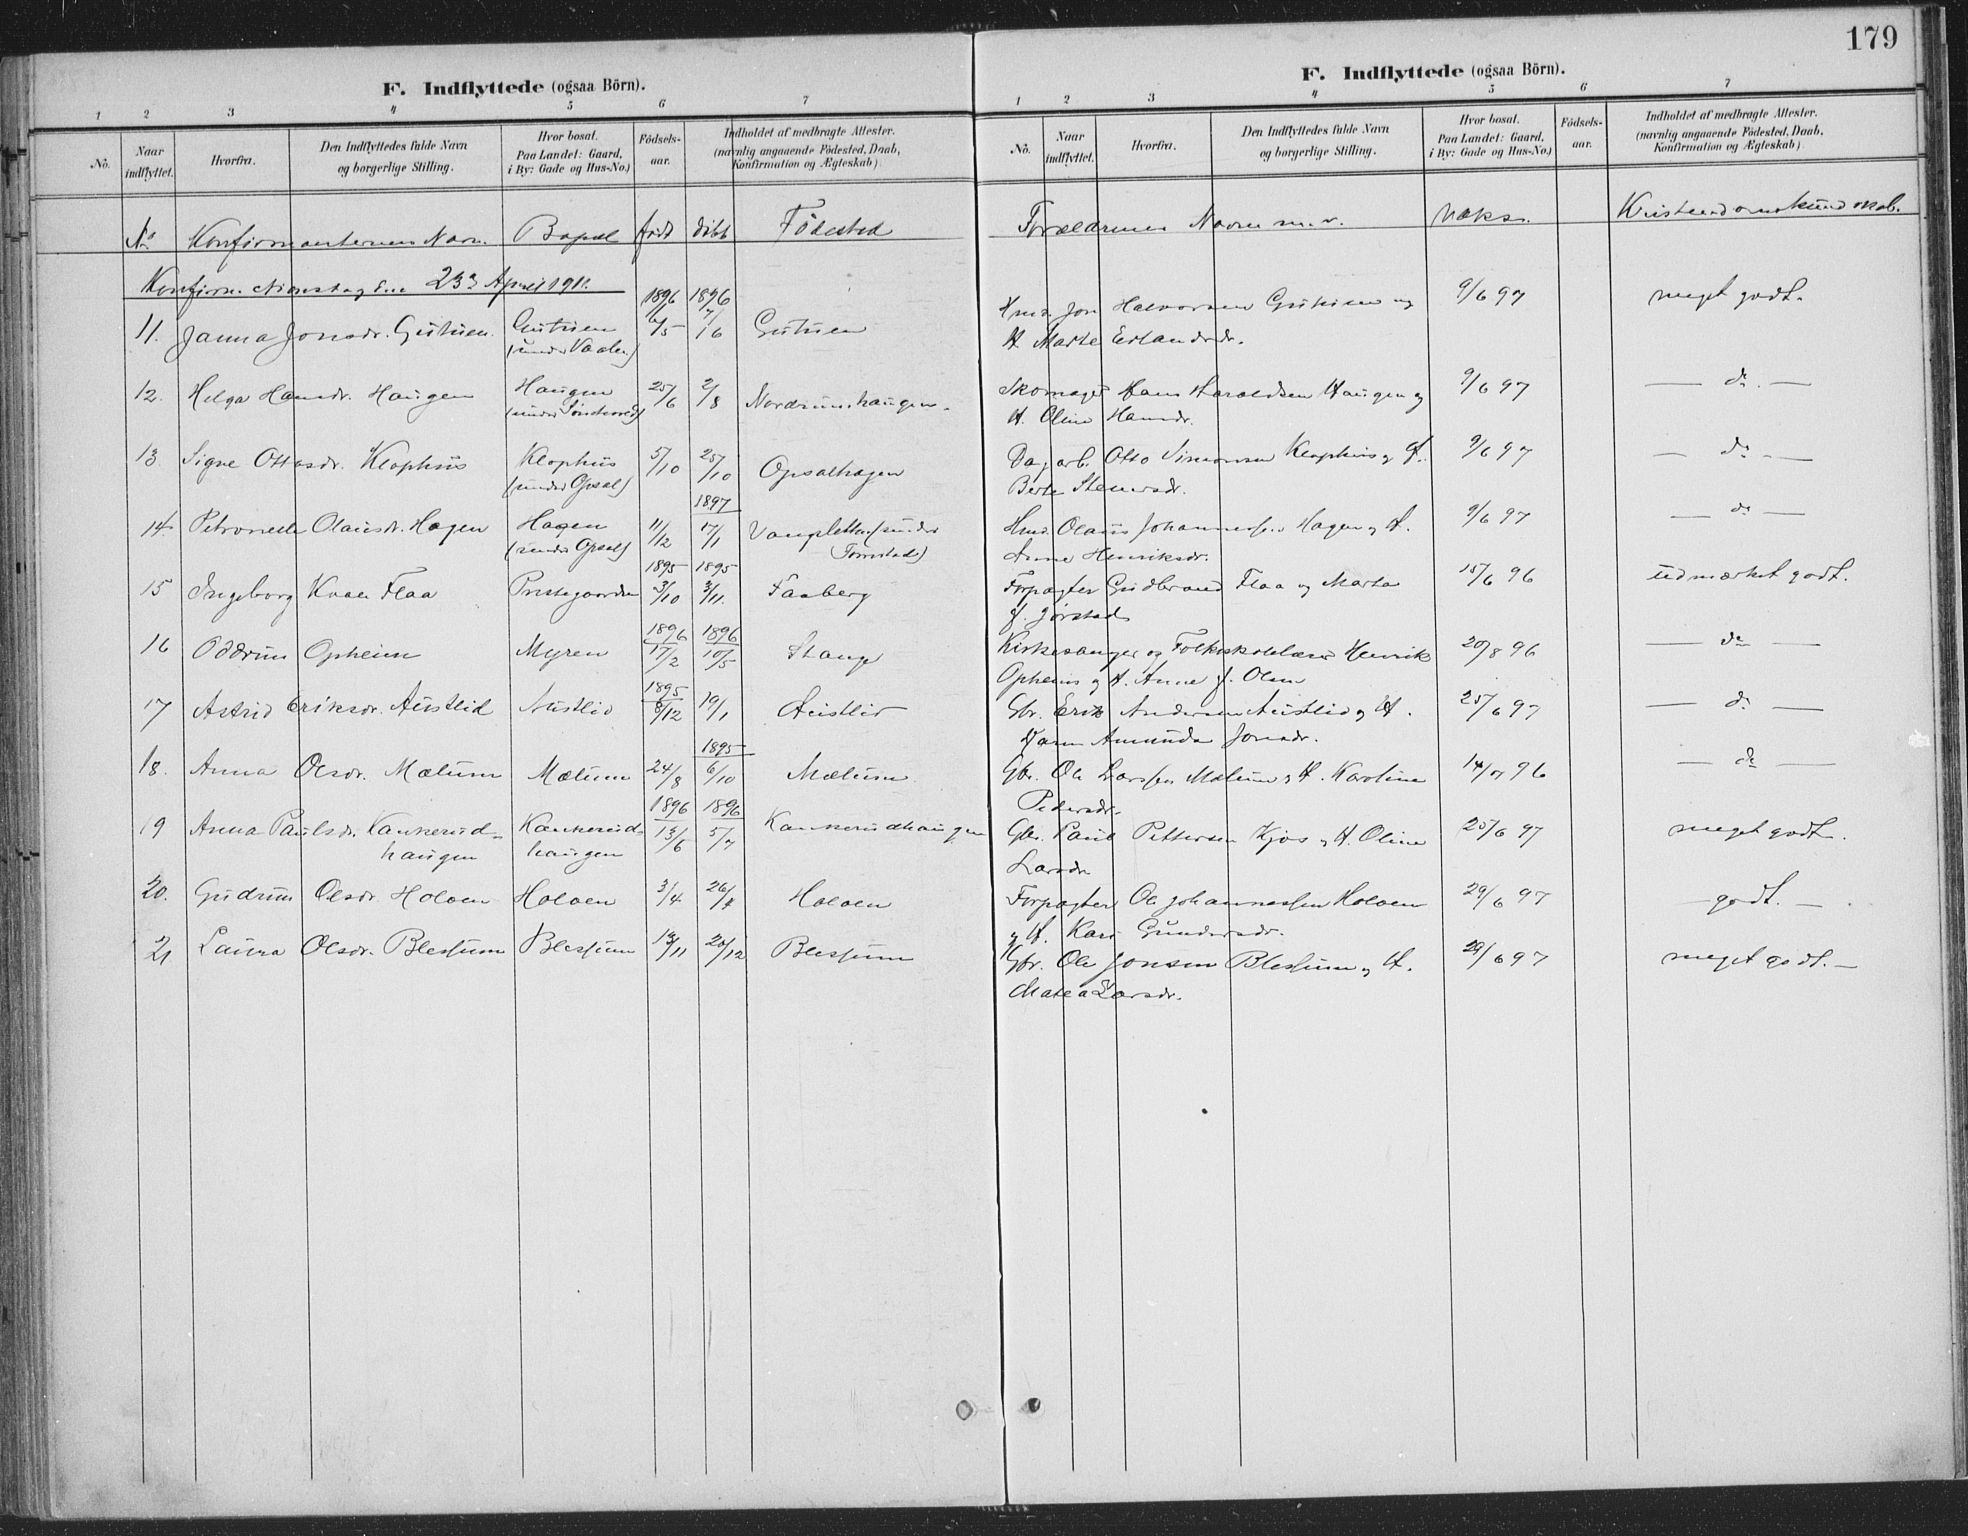 179
F. Indflyttede (ogsaa Börn).
1 2 3 4 5 6 7
No. Naar indflyttet. Hvorfra. Den Indflyttedes fulde Navn og borgerlige Stilling. Hvor bosat. Paa Landet: Gaard, i By: Gade og Hus-No.) Födsels-aar. Indholdet af medbragte Attester. (navnlig angaaende Födested, Daab, Konfirmation og Ægteskab).
No Konfirmanternes Navn. Bopæl født döbt Födested
Konfirmationsdag den 23de April 1911.
1896 1896
11. Janna Jonsdr. Gutuen. Gutuen 6/5 7/16 Gutuen
(under Vaalen)
12. Helga Hansdr. Haugen Haugen 25/6 2/8 Nordrumshaugen.
13 Signe Ottosdr. Klophus Klophus 5/10 25/10 Opsalhagen
(under Opsal)
1897
14. Petronelle Olausdr. Hagen Hagen 11/12 17/1 Vangsletten (under
(under Opsal) Tørrestad)
1895 1895
15 Ingeborg Kvae Flaa Prestegaarden 3/10 3/11. Faaberg
1896 1896
16 Oddrun Opheim Myren 17/2 10/5 Stange
1895
17 Astrid Eriksdr. Austlid Austlid 8/12 19/1 Austlid
1895
18. Anna Olsdr. Mælum Mælum 24/8 6/10 Mælum
1896 1896
19 Anna Paulsdr. Kankerud- Kankerud- 13/5 5/7 Kankerudhaugen
haugen haugen
20. Gudrun Olsdr. Holoen Holoen 3/4 26/4 Holoen
21 Laura Olsdr. Blessum Blessum 13/11 20/12 Blessum
F. Indflyttede (ogsaa Börn).
1 2 3 4 5 6 7
No. Naar indflyttet. Hvorfra. Den Indflyttedes fulde Navn og borgerlige Stilling. Hvor bosat. Paa Landet: Gaard, i By: Gade og Hus-No.) Födsels-aar. Indholdet af medbragte Attester. (navnlig angaaende Födested, Daab, Konfirmation og Ægteskab).
Forældrenes Navne m. v. Vaks. Kristendomskundskab.
Hmd. Jon Halvorsen Gutuen og 9/6 97 meget godt.
H. Marte Erlandsdr.
Skomager Hans Haraldsen Haugen og 9/6 97 — do. —
H. Oline Hansdr.
Dagarb. Otto Simonsen Klophus og H. 9/6 97 — do —
Berte Stenersdr.
Hmd. Olaus Johannessen Hagen og H. 9/6 97 — do —
Anne Henriksdr.
Forpagter Gudbrand Flaa og Marta 15/6 96 udmærket godt.
f. Jørstad
Kirkesanger og Folkeskolelærer Henrik 20/8 96 — do —
Opheim og H. Anne f. Olsen
Gbr. Erik Andersen Austlid og H. 25/6 97 — do —
Karen Amunda Jonsdr.
Gbr. Ole Larssen Mælum og H. Karoline 14/7 96 — do —
Pedersdr.
Gbr. Paul Pettersen Kjos og H. Oline 25/6 97 meget godt.
Larsdr.
Forpagter Ole Johannessen Holoen 29/6 97 godt. —
og H. Kari Gundersdr.
Gbr. Ole Jonsen Blessum og H. 29/6 97 meget godt. —
Matea Larsdr.